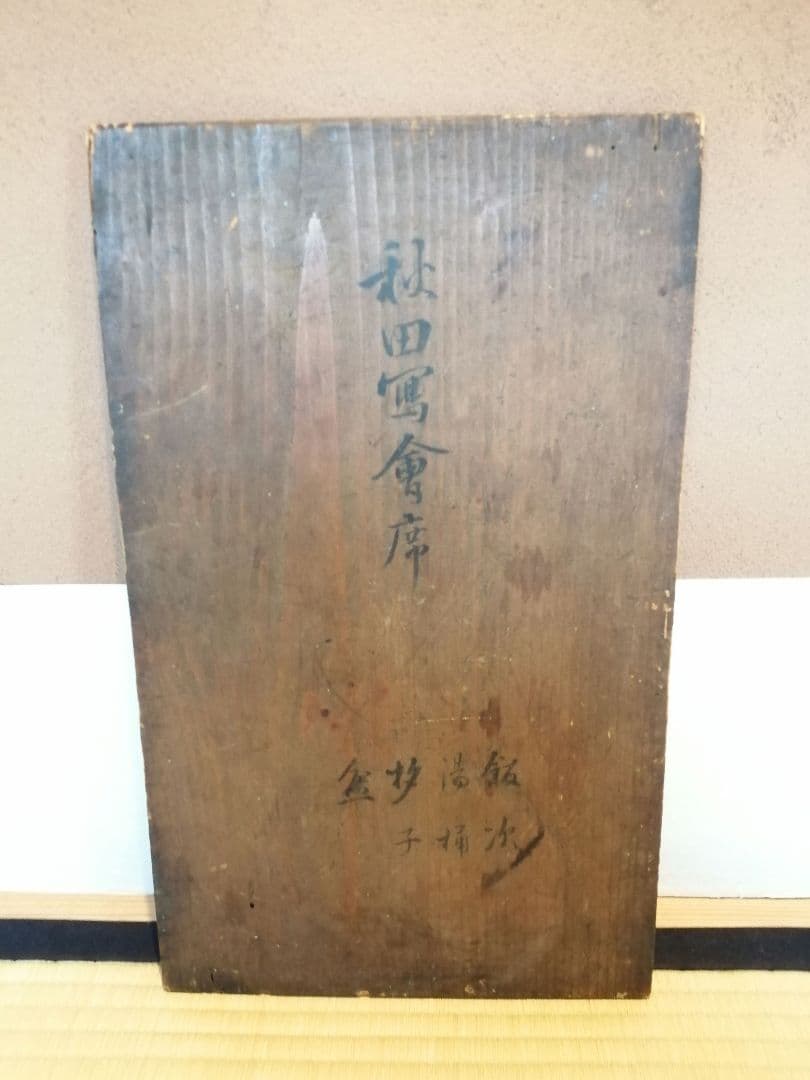 秋田寫會席
飯次
湯桶
杓子
盆